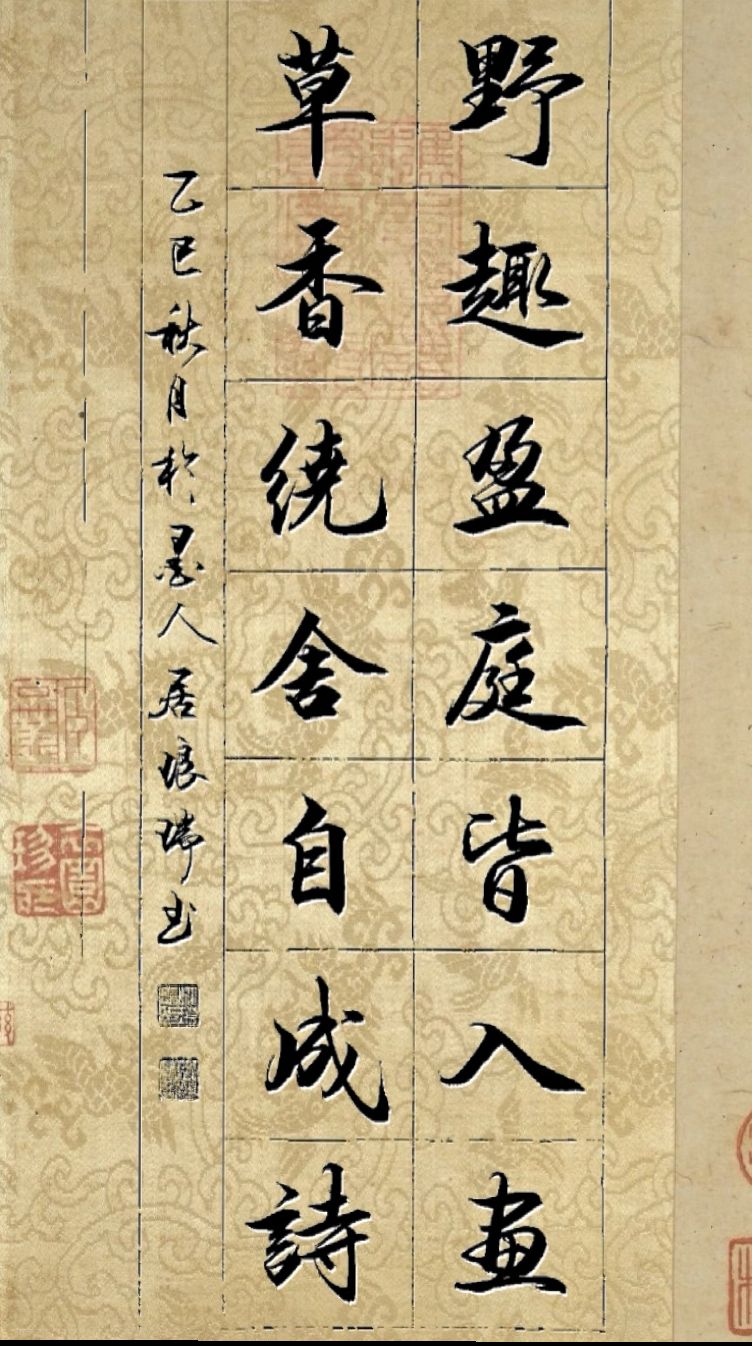 野趣盈庭皆入畫
草香繞舍自成詩
乙巳秋月於墨人居琅瑋书